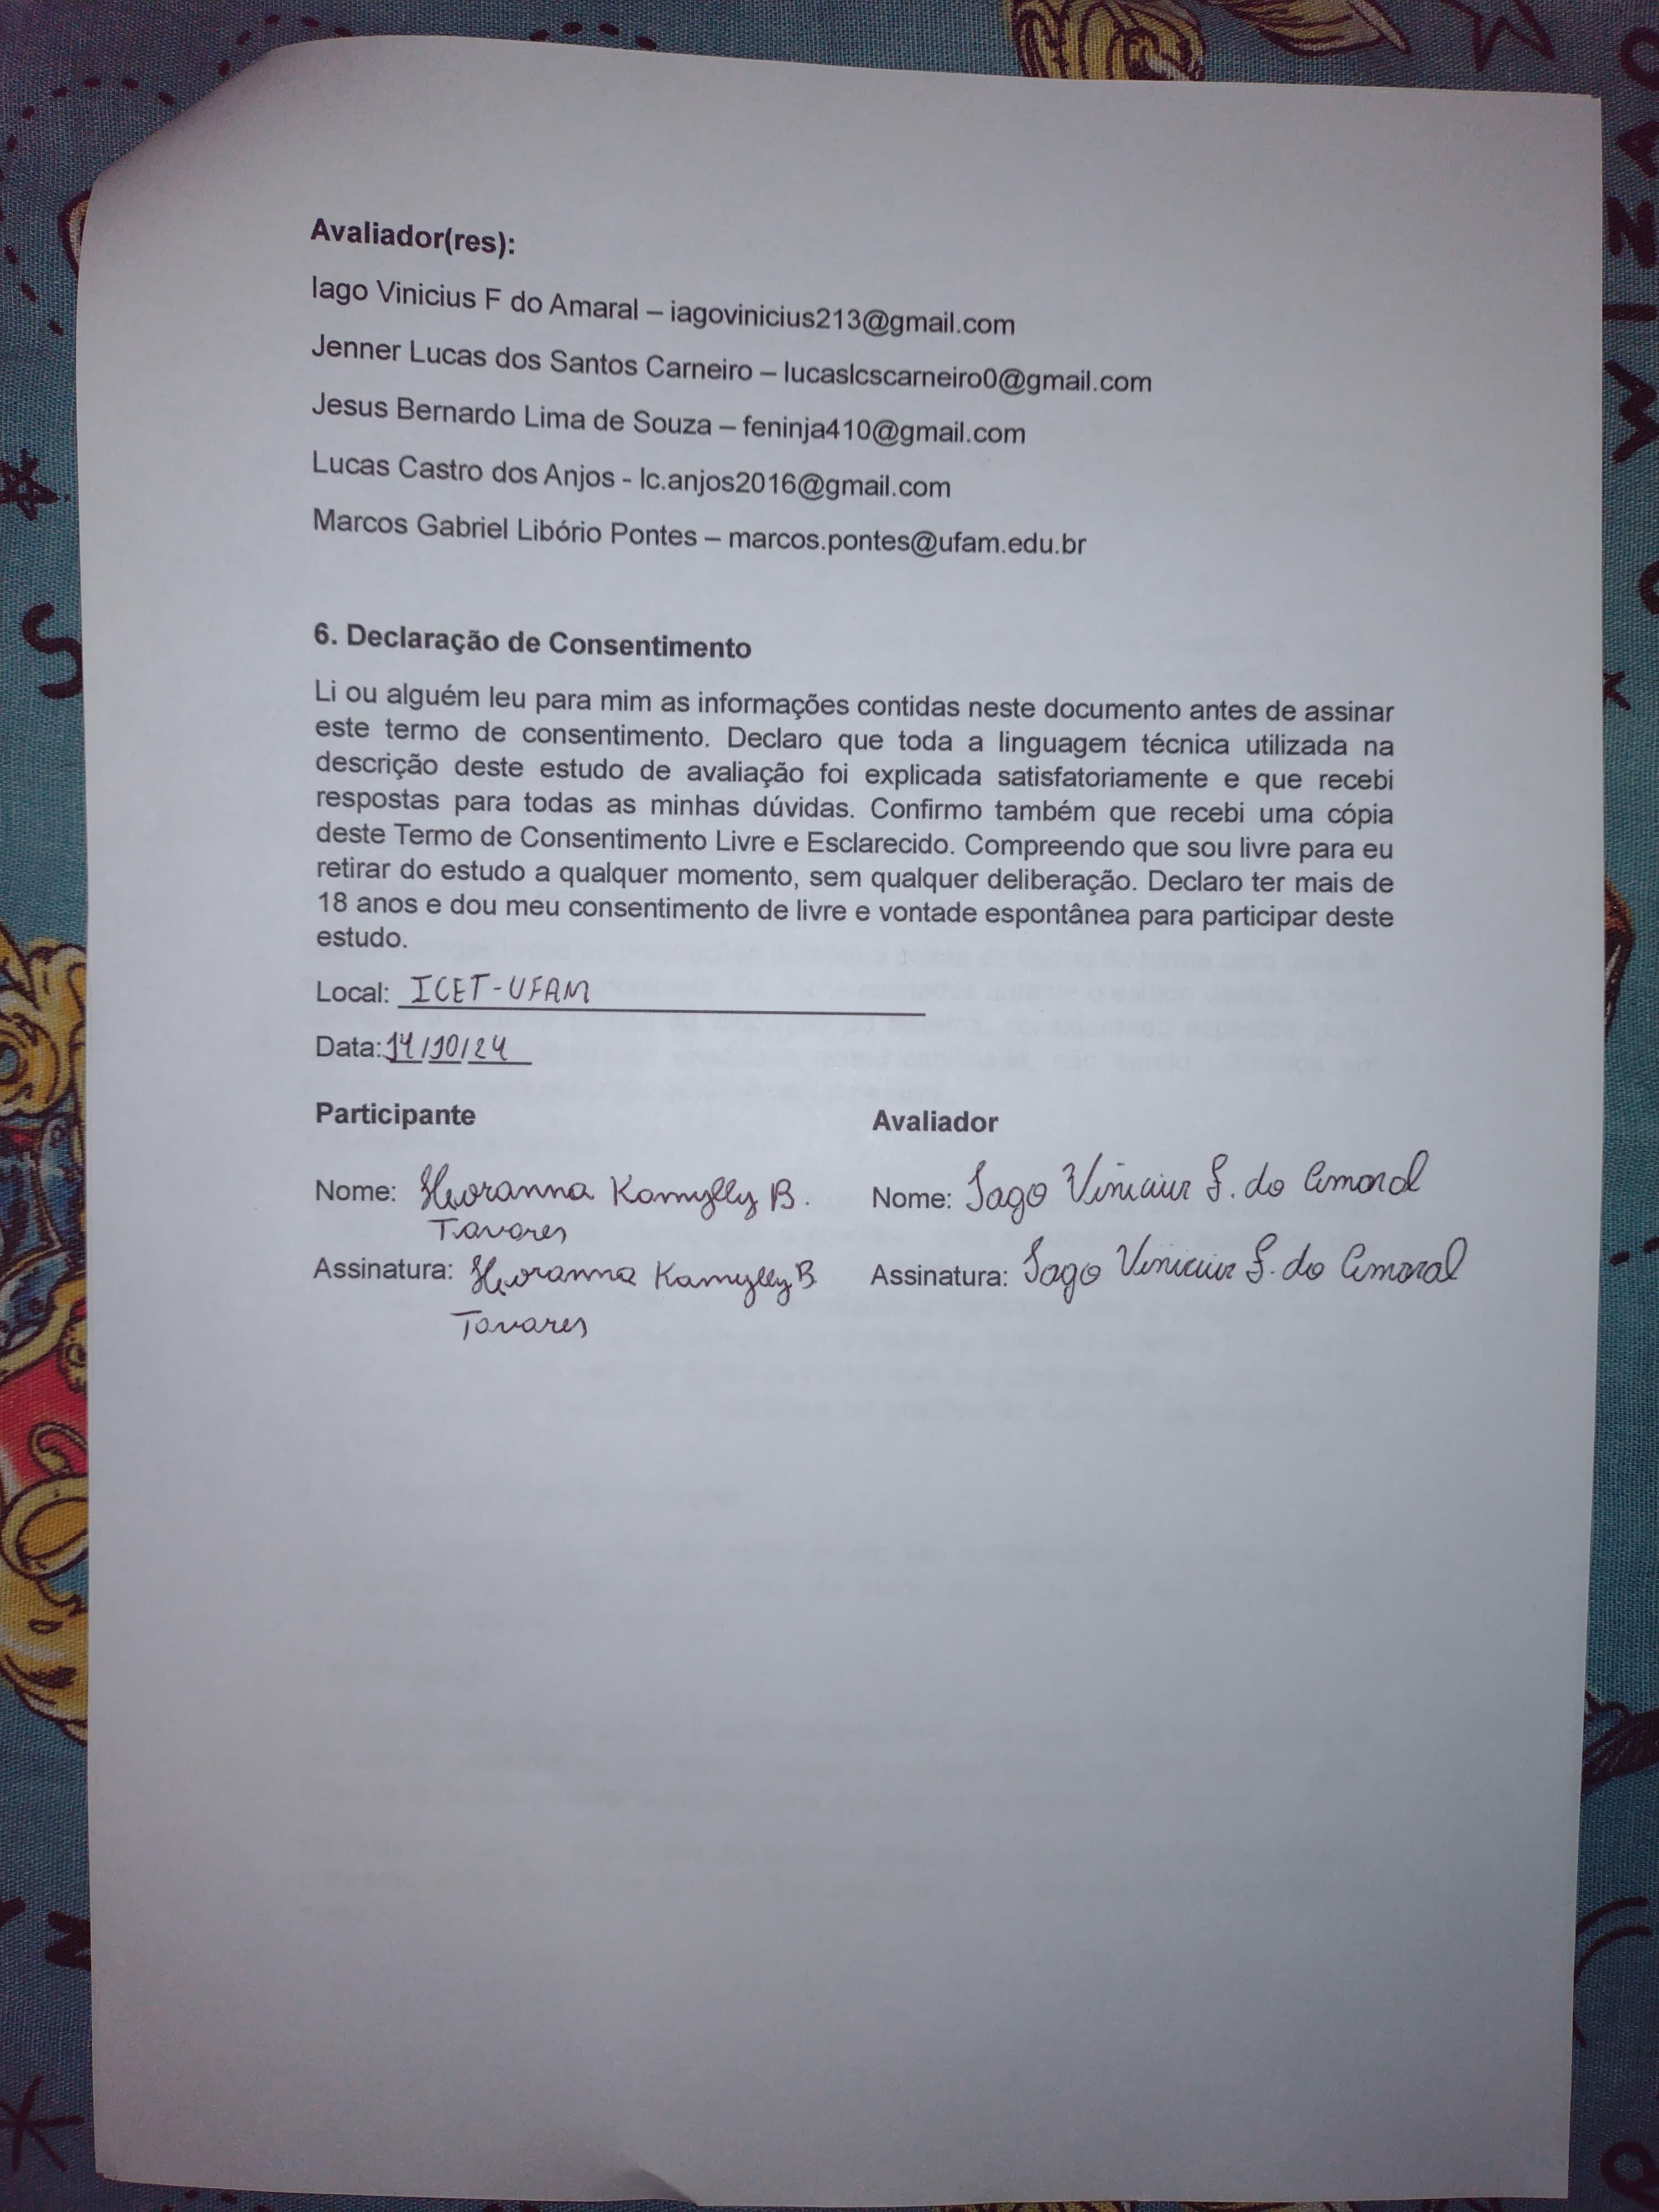 Avaliador(res):
Iago Vinicius F do Amaral – iagovinicius213@gmail.com
Jenner Lucas dos Santos Carneiro – lucaslcscarneiro0@gmail.com
Jesus Bernardo Lima de Souza – feninja410@gmail.com
Lucas Castro dos Anjos - lc.anjos2016@gmail.com
Marcos Gabriel Libório Pontes – marcos.pontes@ufam.edu.br
6. Declaração de Consentimento
Li ou alguém leu para mim as informações contidas neste documento antes de assinar
este termo de consentimento. Declaro que toda a linguagem técnica utilizada na
descrição deste estudo de avaliação foi explicada satisfatoriamente e que recebi
respostas para todas as minhas dúvidas. Confirmo também que recebi uma cópia
deste Termo de Consentimento Livre e Esclarecido. Compreendo que sou livre para eu
retirar do estudo a qualquer momento, sem qualquer deliberação. Declaro ter mais de
18 anos e dou meu consentimento de livre e vontade espontânea para participar deste
estudo.
Local: ICET-UFAM
Data: 14/10/24
Participante
Nome: Kamylly B.
Tavares
Assinatura: Kamylly B
Tavares
Avaliador
Nome: Iago Vinicius F. do Amaral
Assinatura: Iago Vinicius F. do Amaral